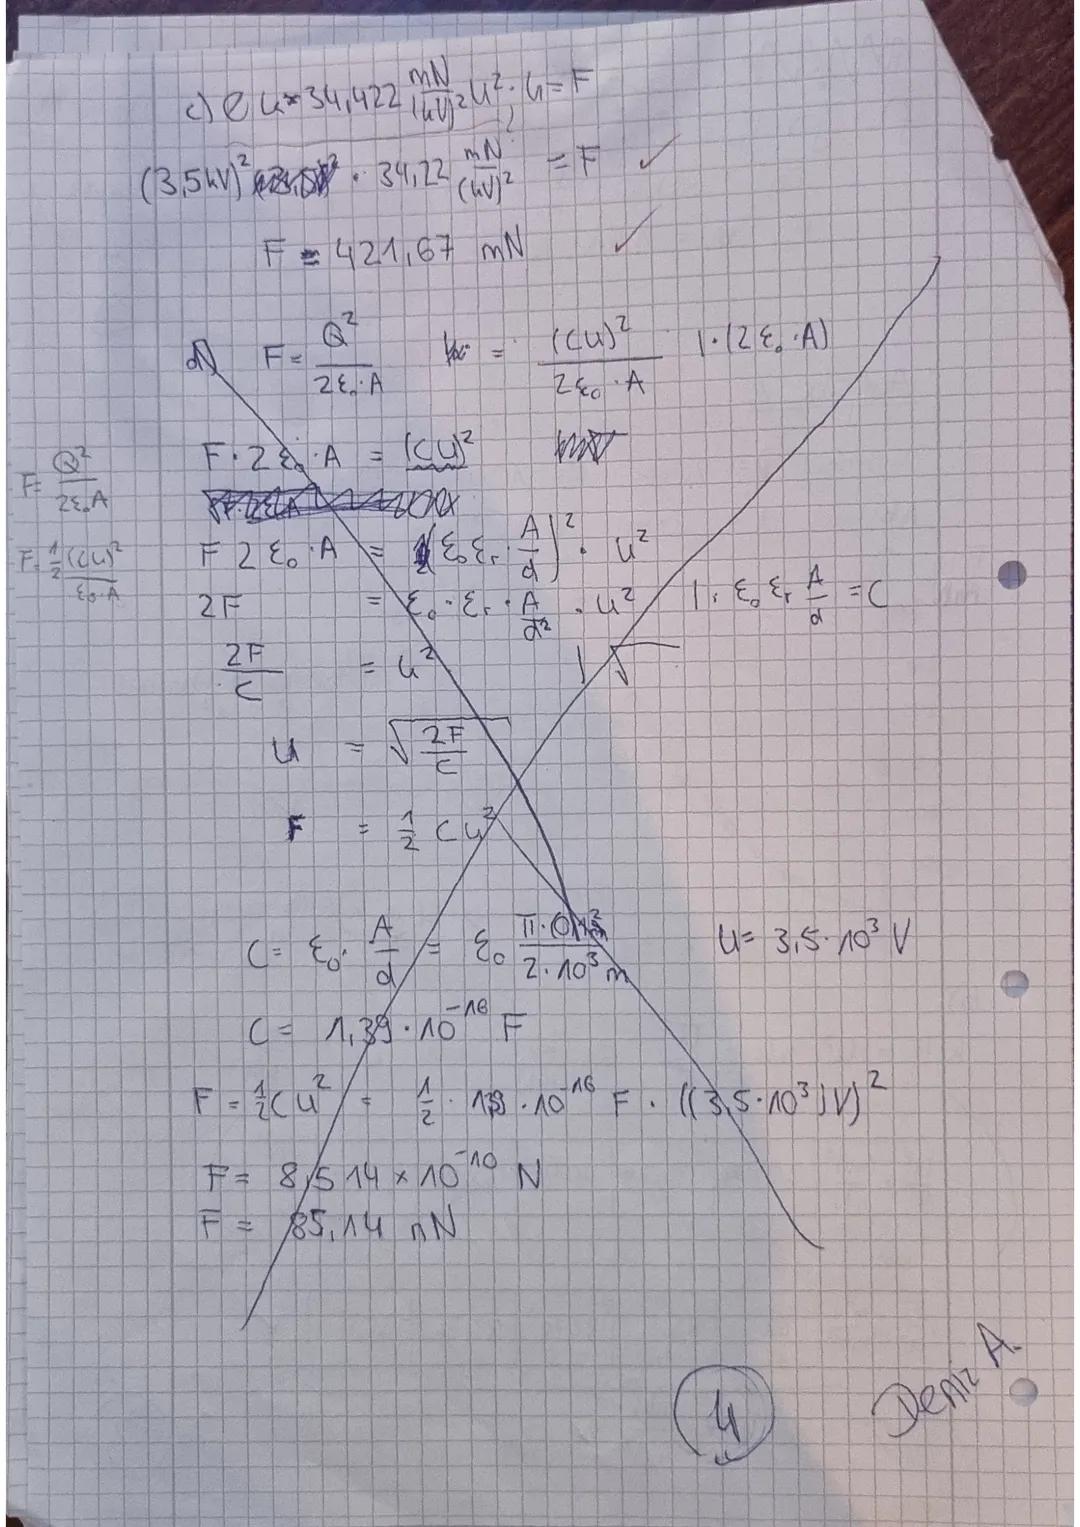 c) 34,422 mN/(kV)² U² = F
(3,5kV)² · 34,22 mN/(kV)² = F ✓
F = 421,67 mN ✓
d) F = Q²/(2ε₀·A) = (CU)²/(2ε₀·A) |·(2ε₀·A)
F·2ε₀·A = (CU)²
F = Q²/(2ε₀A)
F 2ε₀·A = (ε₀εᵣ·A/d)² · U²
F = 1/2 (CU)²/(ε₀·A)
2F = ε₀·εᵣ·A/d² · U² |: ε₀εᵣ A/d = C
2F/C = U² |√
U = √(2F/C)
F = 1/2 CU²
C = ε₀· A/d = ε₀ π· /(2·10³ m) U = 3,5·10³ V
C = 1,39·10⁻¹⁶ F
F = 1/2CU² = 1/2 · 139·10⁻¹⁶ F · ((3,5·10³)V)²
F = 8,514×10⁻¹⁰ N
F = 85,14 nN
4
Deniz A.